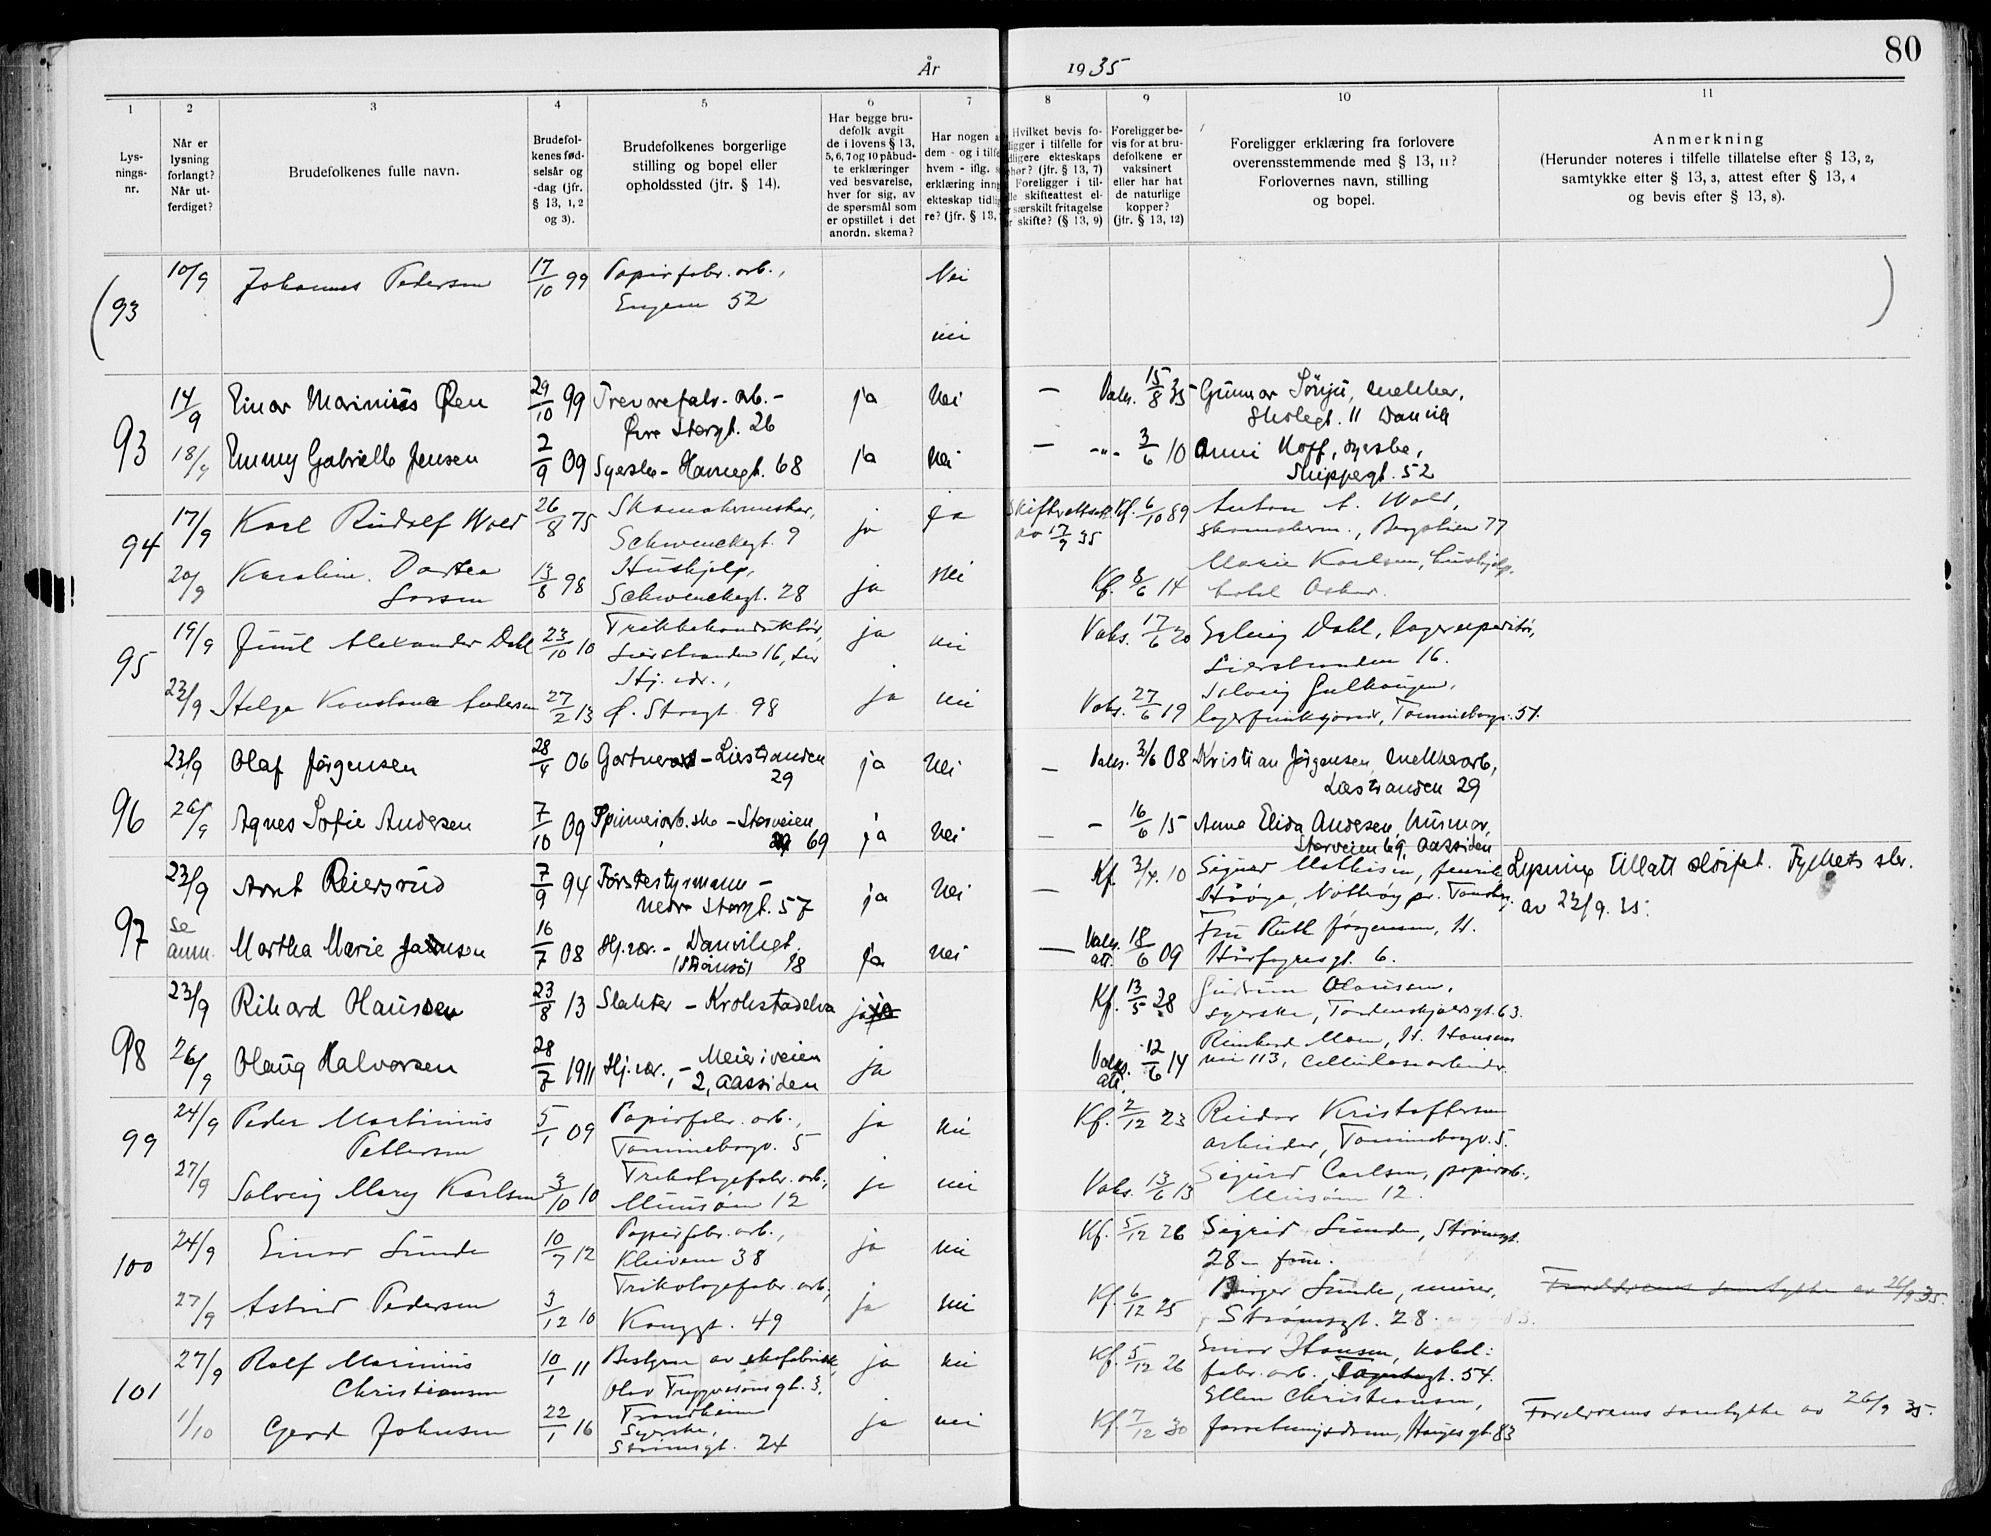 80
År 1935
1 2 3 4 5 6 7 8 9 10 11
Lysningsnr.
Når er lysning forlangt? Når utferdiget?
Brudefolkenes fulle navn.
Brudefolkenes fødselsår og -dag (jfr. § 13, 1, 2 og 3).
Brudefolkenes borgerlige stilling og bopel eller opholdssted (jfr. § 14).
Har begge brudefolk avgit de i lovens § 13, 5, 6, 7 og 10 påbudte erklæringer ved besvarelse, hver for sig, av de spørsmål som er opstillet i det anordn. skema?
Foreligger bevis for at brudefolkene er vaksinert eller har hat de naturlige kopper? (jfr. § 13, 12)
Foreligger erklæring fra forlovere overensstemmende med § 13, 11? Forlovernes navn, stilling og bopel.
Anmerkning
(Herunder noteres i tilfelle tillatelse efter § 13, 2, samtykke efter § 13, 3, attest efter § 13, 4 og bevis efter § 13, 8).
(93 10/9 Johannes Pedersen 17/10 99 Papirfabr. arb., Nei )
Engene 52
nei
93 14/9 Einar Marinius Øen 29/10 99 Trevarefabr. arb. - ja Nei — Vaks. 15/8 35 Gunnar
Øvre Storgt. 26 Skolegt. 11 Danvik
18/9 Emmy Gabrielle Jensen 2/9 09 Syerske - Havnegt. 68 ja nei — -"- 3/6 10 Anni Hoff, syerske,
Skippergt. 52
94 17/9 Karl Rudolf Wold 26/8 75 Skomakermester, ja ja Kf. 6/10 89 Anton A. Wold,
Schwenckegt. 9 av 17/9 35 skomakerm., Bragelien 77
20/9 Karoline Dortea 13/8 98 Hushjelp, ja nei Kf. 8/6 14 Marie Karlsen, hushjelp,
Larsen Schwenckegt. 28 hotel Oskar.
95 19/9 Juul Alexander Dahl 23/10 10 Trikkekonduktør, ja nei Vaks. 17/6 20 Solveig Dahl, lagerexpeditør,
Lierstranden 16, Lier Lierstranden 16.
23/9 Helga Konstanse Andersen 27/2 13 Hj. vær., ja nei Vaks. 27/6 19 Solveig Gulhaugen,
Ø. Storgt. 98 lagerfunksjonær, Tomineborgv. 51.
96 23/9 Olaf Jørgensen 28/4 06 Gartner - Lierstranden ja Nei — Vaks. 3/6 08 Kristian Jørgensen,
29 Lierstranden 29
26/9 Agnes Sofie Andersen 7/10 09 Spinneriarb.ske - Storveien ja Nei — - 16/6 15 Anna Elida Andersen, husmor,
69 Storveien 69, Aassiden
97 23/9 Arnt Reiersrud 7/9 94 Førstestyrmann - ja Nei — Kf. 3/4 10 Sigurd Mathisen,
Nedre Storgt. 57 Nøtterøy pr. Tønsberg.
Lysning tillatt sløifet. Fylkets skr.
av 23/9. 35.
se anm. Martha Marie Jansen 16/7 08 Hj. vær. - Danvikgt. ja Nei — Vaks. att. 18/6 09 Fru Ruth Jørgensen, H.
(Strømsø) 18 Hårfagresgt. 6.
98 23/9 Rikard Hansen 23/8 13 Slakter - Krokstadelva ja Kf. 13/5 28 Gudrun Olausen,
syerske, Tordenskjoldsgt. 63.
26/9 Olaug Halvorsen 28/7 1911 Hj. vær., - Meieriveien ja Vaks. att. 12/6 14 Reinhard Moen, H. Hansens
2, Aassiden vei 113, cellulosearbeider.
99 24/9 Peder Martinius 5/1 09 Papirfabr. arb., ja nei Kf. 2/12 23 Reidar Kristoffersen
Pettersen Tomineborgv. 5 arbeider, Tomineborgv. 5.
27/9 Solveig Mary Karlsen 3/10 10 Trikotagefabr. arb., ja nei Vaks. 13/6 13 Sigurd Carlsen, papirarb.,
12 12.
100 24/9 Einar Sunde 10/7 12 Papirfabr. arb., ja nei Kf. 5/12 26 Sigrid Sunde, Strømsgt.
Kleivene 38 28 - frue.
27/9 Astrid Pedersen 3/12 10 Trikotagefabr. arb., ja nei Kf. 6/12 25 Birger Sunde, murer,
Konggt. 49 Strømsgt. 28.
Foreldrenes samtykke av 26/9 35.
101 27/9 Rolf Marinius 10/1 11 Bestyrer av skofabrikk, ja nei Kf. 5/12 26 Einar Hansen,
Christiansen Olav Tryggvasonsgt. 3, fabr. arb., 54.
Trondheim
1/10 Gerd Johnsen 22/1 16 Syerske, ja nei Kf. 7/12 30 Ellen Christiansen,
Strømsgt. 24 forretningsdrivende, Haugesgt. 83
Foreldrenes samtykke av 26/9 35.